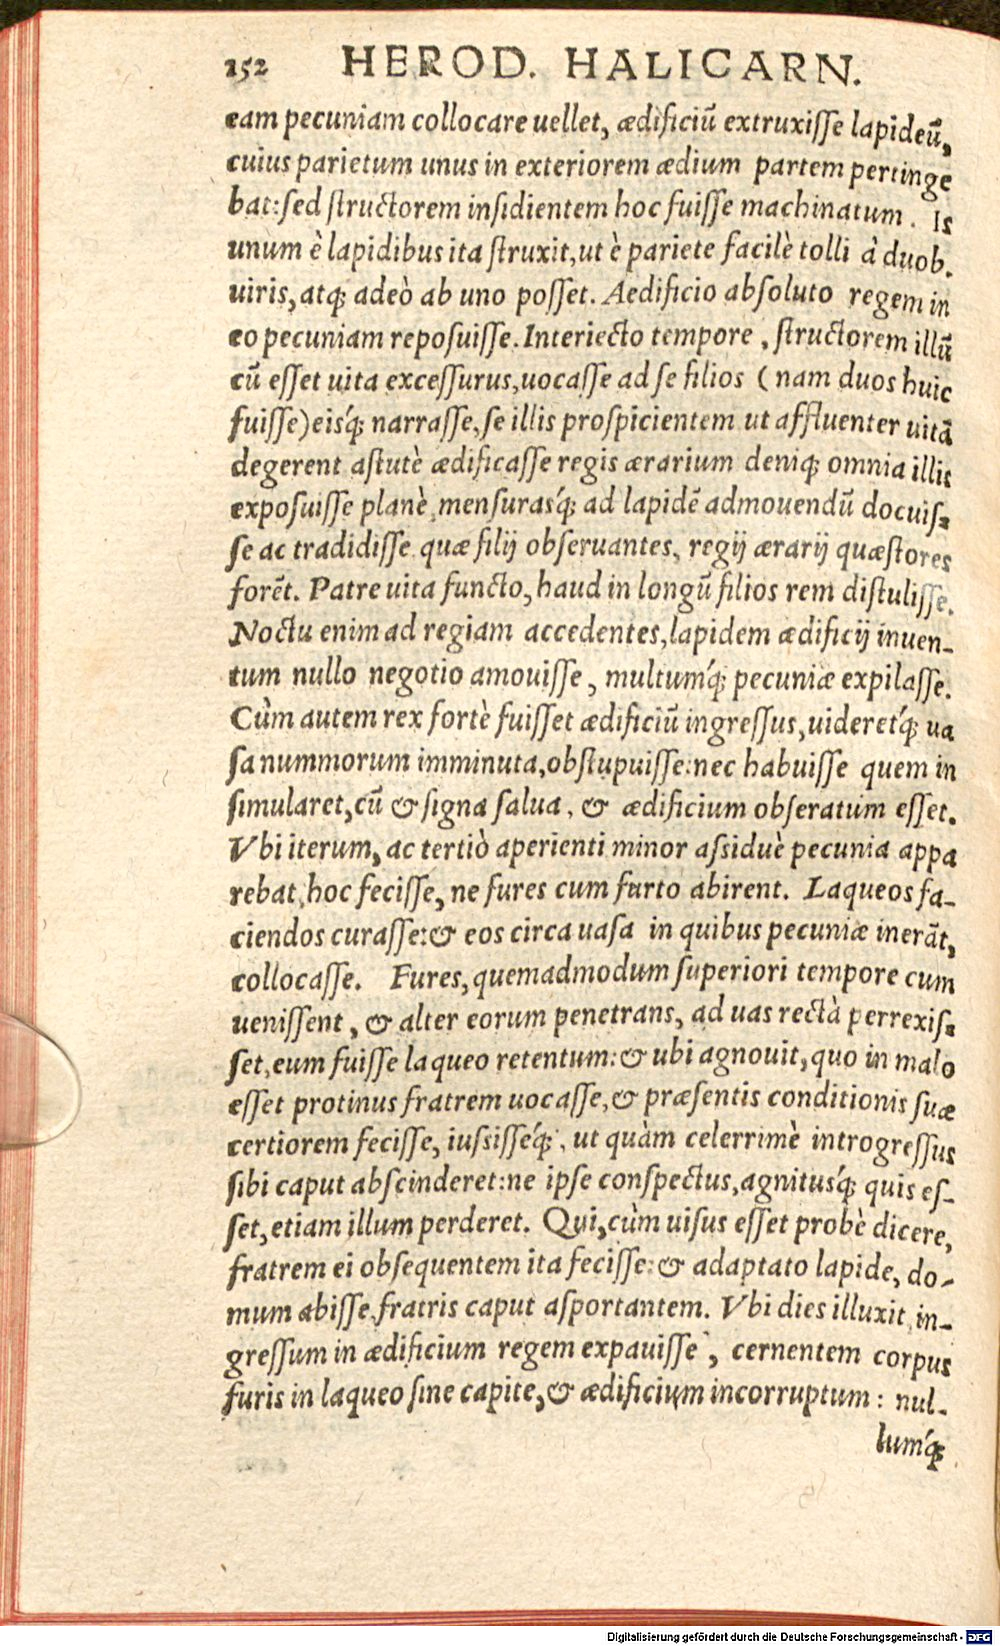 152 HEROD. HALICARN.
eam pecuniam collocare uellet, ædificiũ extruxiſſe lapideũ,
cuius parietum unus in exteriorem ædium partem pertinge
bat: ſed ſtructorem inſidientem hoc fuiſſe machinatum. Is
unum è lapidibus ita ſtruxit, ut è pariete facilè tolli à duob.
uiris, atq; adeò ab uno poſſet. Aedificio abſoluto regem in
eo pecuniam repoſuiſſe. Interiecto tempore, ſtructorem illũ
cũ eſſet uita exceſſurus, uocaſſe ad ſe filios (nam duos huic
fuiſſe) eisq́; narraſſe, ſe illis proſpicientem ut affluenter uitã
degerent aſtutè ædificaſſe regis ærarium deniq; omnia illis
expoſuiſſe planè, menſurasq́; ad lapidẽ admouendũ docuiſ⸗
ſe ac tradidiſſe quæ filij obſeruantes, regij ærarij quæſtores
forẽt. Patre uita functo, haud in longũ filios rem diſtuliſſe.
Noctu enim ad regiam accedentes, lapidem ædificij inuen-
tum nullo negotio amouiſſe, multumq́; pecuniæ expilaſſe.
Cùm autem rex fortè fuiſſet ædificiũ ingreſſus, uideretq́; ua
ſa nummorum imminuta, obſtupuiſſe: nec habuiſſe quem in
ſimularet, cũ & ſigna ſalua, & ædificium obſeratum eſſet.
Vbi iterum, ac tertiò aperienti minor aſsiduè pecunia appa
rebat, hoc feciſſe, ne fures cum furto abirent. Laqueos fa-
ciendos curaſſe: & eos circa uaſa in quibus pecuniæ inerãt,
collocaſſe. Fures, quemadmodum ſuperiori tempore cum
ueniſſent, & alter eorum penetrans, ad uas rectà perrexiſ⸗
ſet, eum fuiſſe laqueo retentum: & ubi agnouit, quo in malo
eſſet protinus fratrem uocaſſe, & præſentis conditionis ſuæ
certiorem feciſſe, iuſsiſſeq́;, ut quàm celerrimè introgreſſus
ſibi caput abſcinderet: ne ipſe conſpectus, agnitusq́; quis eſ-
ſet, etiam illum perderet. Qui, cùm uiſus eſſet probè dicere,
fratrem ei obſequentem ita feciſſe: & adaptato lapide, do-
mum abiſſe, fratris caput aſportantem. Vbi dies illuxit, in-
greſſum in ædificium regem expauiſſe, cernentem corpus
furis in laqueo ſine capite, & ædificium incorruptum: nul-
lumq́;
Digitalisierung gefördert durch die Deutsche Forschungsgemeinschaft - DFG